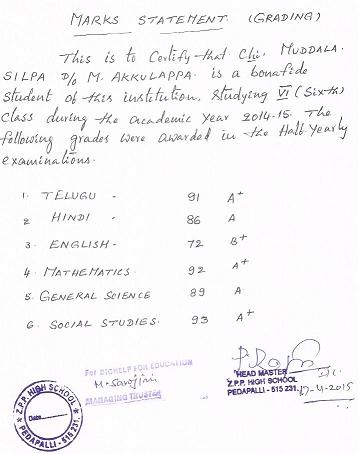 MARKS STATEMENT (GRADING)
This is to Certify that Chi. MUDDALA.
SILPA D/o M. AKKULAPPA. is a bonafide
student of this institution, studying VI (Sixth)
class during the academic year 2014-15. The
following grades were awarded in the Half-Yearly
examinations.
1. TELUGU - 91 A+
2 HINDI - 86 A
3. ENGLISH - 72 B+
4. MATHEMATICS. 92 A+
5. GENERAL SCIENCE 89 A
6. SOCIAL STUDIES. 93 A+
For DICHELP FOR EDUCATION
M. Sarojini
MANAGING TRUSTEE
HEAD MASTER
Z.P.P. HIGH SCHOOL
PEDAPALLI - 515 231.
Z.P.P. HIGH SCHOOL
Date
PEDAPALLI - 515 231.